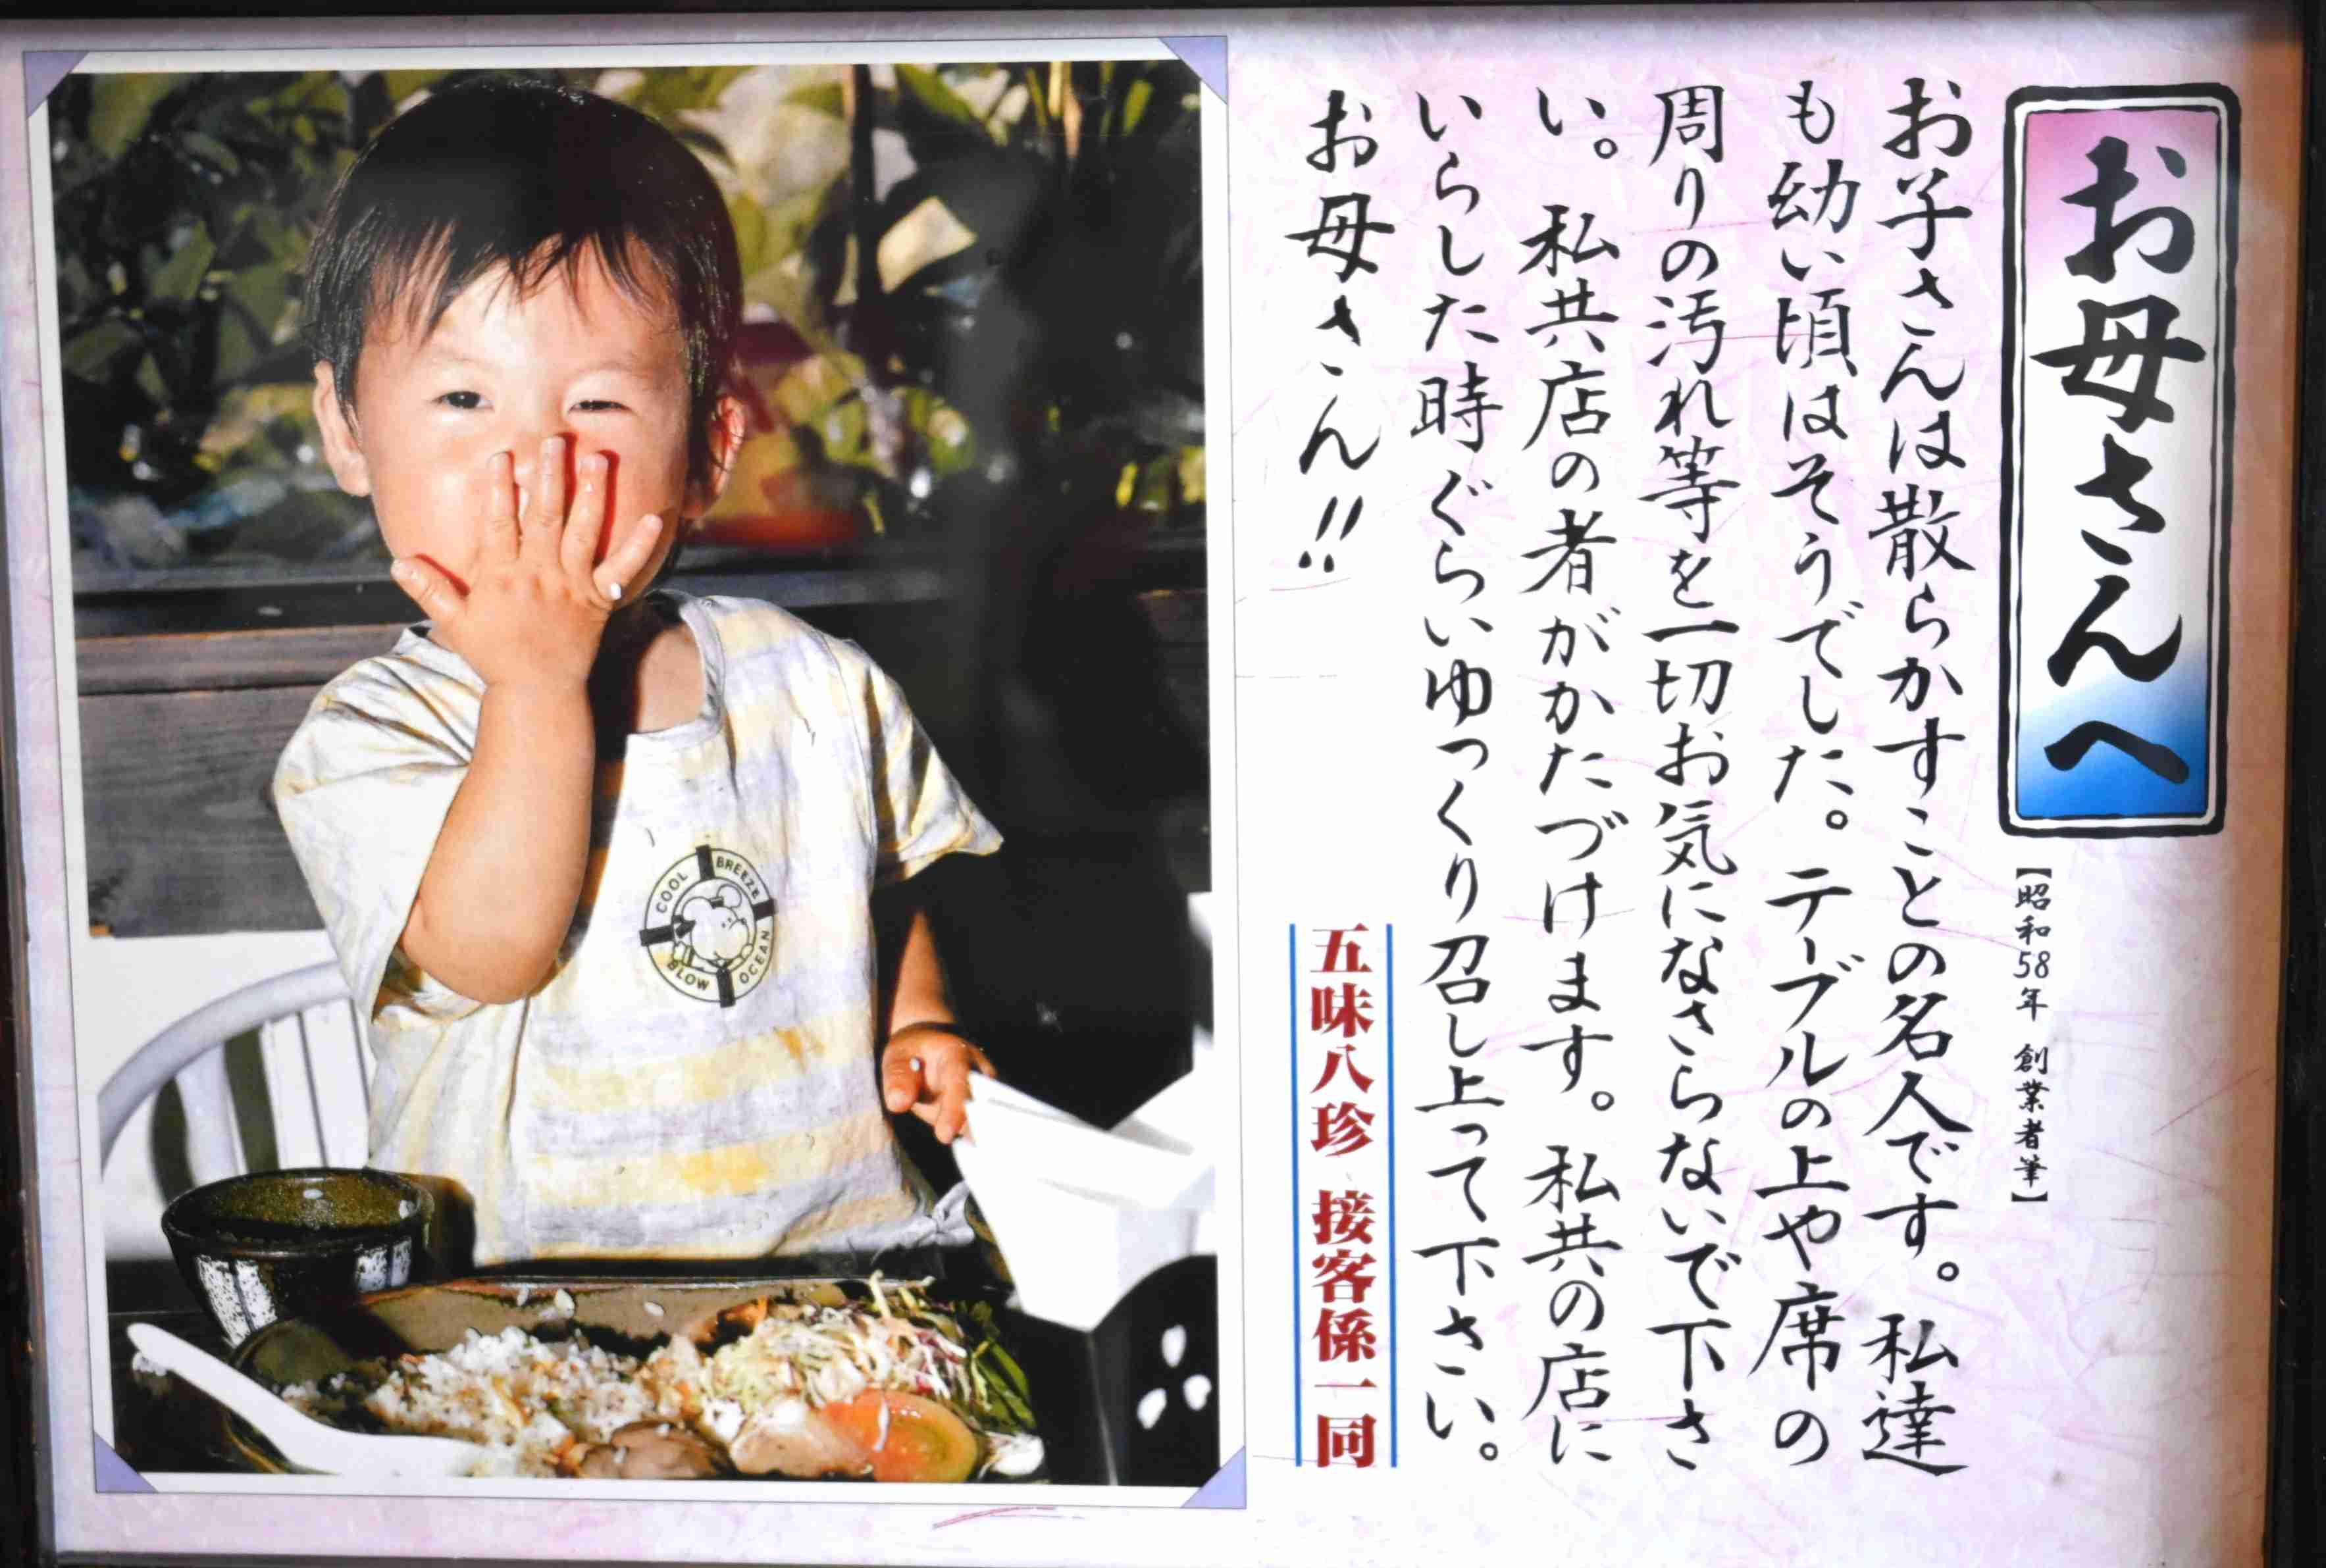 お母さんへ
【昭和58年 創業者筆】
お子さんは散らかすことの名人です。私達
も幼い頃はそうでした。テーブルの上や席の
周りの汚れ等を一切お気になさらないで下さ
い。私共店の者がかたづけます。私共の店に
いらした時ぐらいゆっくり召し上って下さい。
お母さん!!
五味八珍 接客係一同
COOL BREEZE
BLOW OCEAN